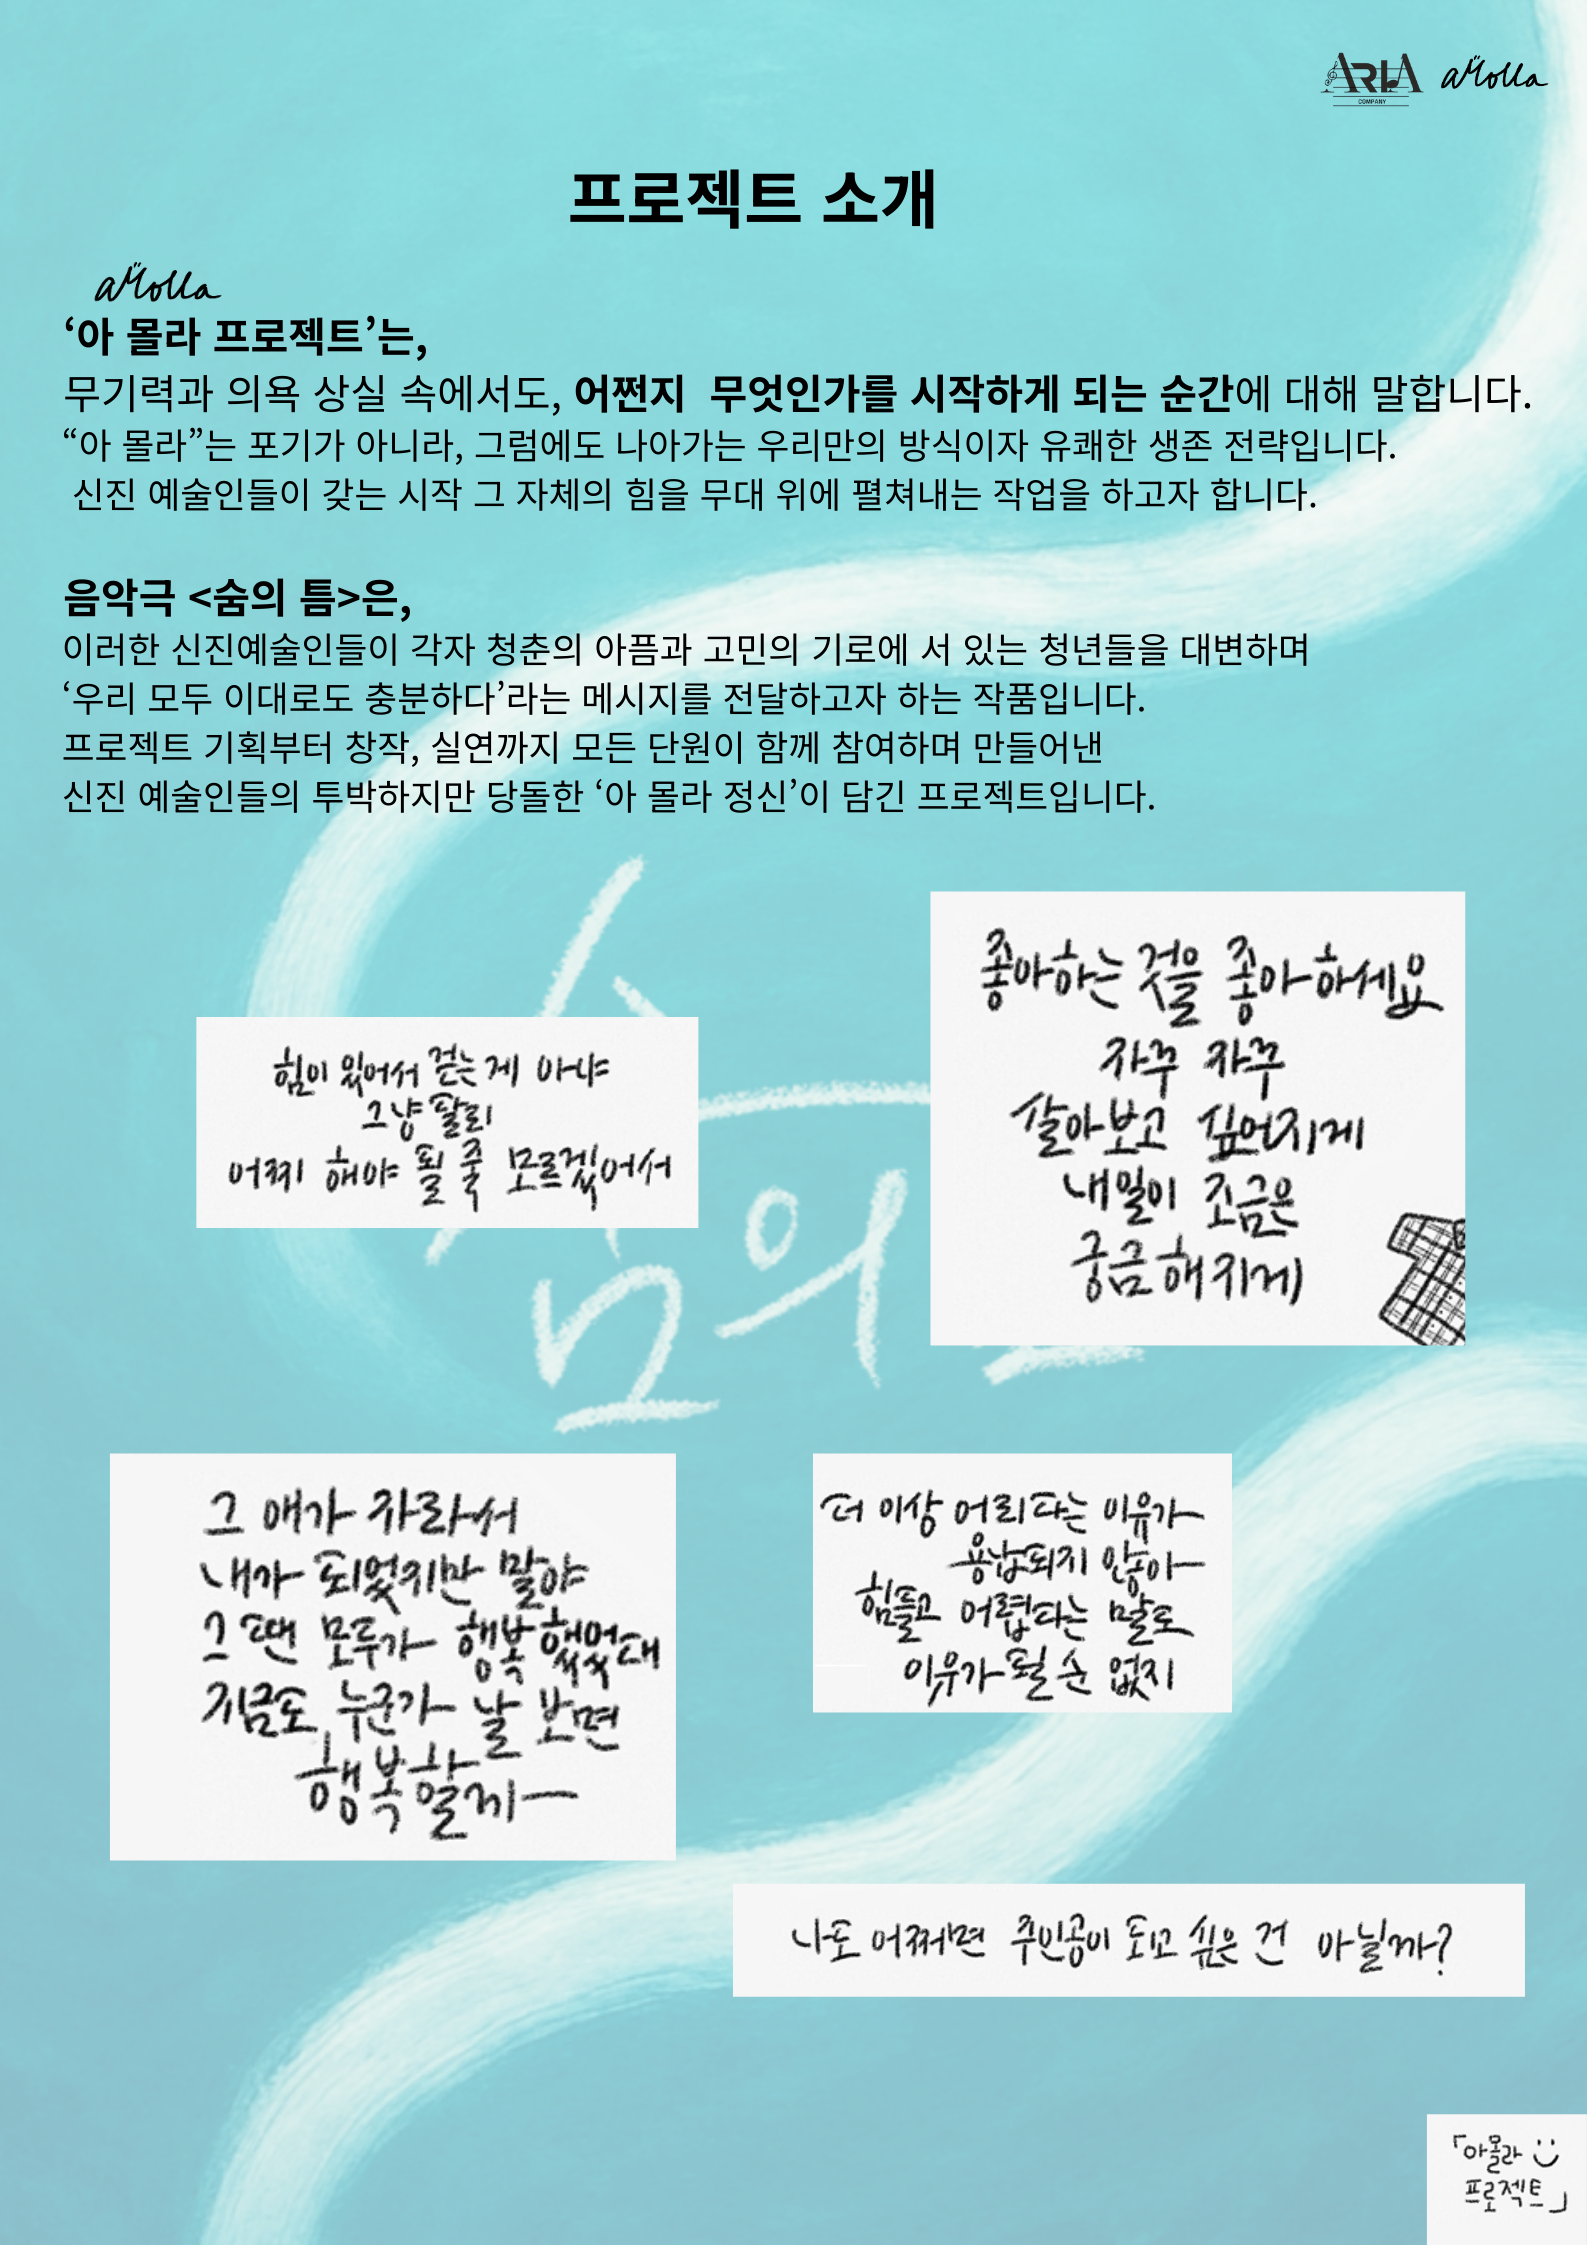 ARIA
COMPANY
aMolla
프로젝트 소개
aMolla
‘아 몰라 프로젝트’는,
무기력과 의욕 상실 속에서도, 어쩐지 무엇인가를 시작하게 되는 순간에 대해 말합니다.
“아 몰라”는 포기가 아니라, 그럼에도 나아가는 우리만의 방식이자 유쾌한 생존 전략입니다.
신진 예술인들이 갖는 시작 그 자체의 힘을 무대 위에 펼쳐내는 작업을 하고자 합니다.
음악극 <숨의 틈>은,
이러한 신진예술인들이 각자 청춘의 아픔과 고민의 기로에 서 있는 청년들을 대변하며
‘우리 모두 이대로도 충분하다’라는 메시지를 전달하고자 하는 작품입니다.
프로젝트 기획부터 창작, 실연까지 모든 단원이 함께 참여하며 만들어낸
신진 예술인들의 투박하지만 당돌한 ‘아 몰라 정신’이 담긴 프로젝트입니다.
숨의
힘이 있어서 걷는 게 아냐
그냥 팔리
어찌 해야 될 줄 모르겠어서
좋아하는 것을 좋아하세요
자꾸 자꾸
살아보고 싶어지게
내일이 조금은
궁금해지게
그 애가 자라서
내가 되었지만 말야
그땐 모두가 행복했었대
지금도 누군가 날 보면
행복할까ㅡ
더 이상 어리다는 이유가
용납되지 않아
힘들고 어렵다는 말로
이유가 될 순 없지
나도 어쩌면 주인공이 되고 싶은 건 아닐까?
「아몰라
프로젝트」